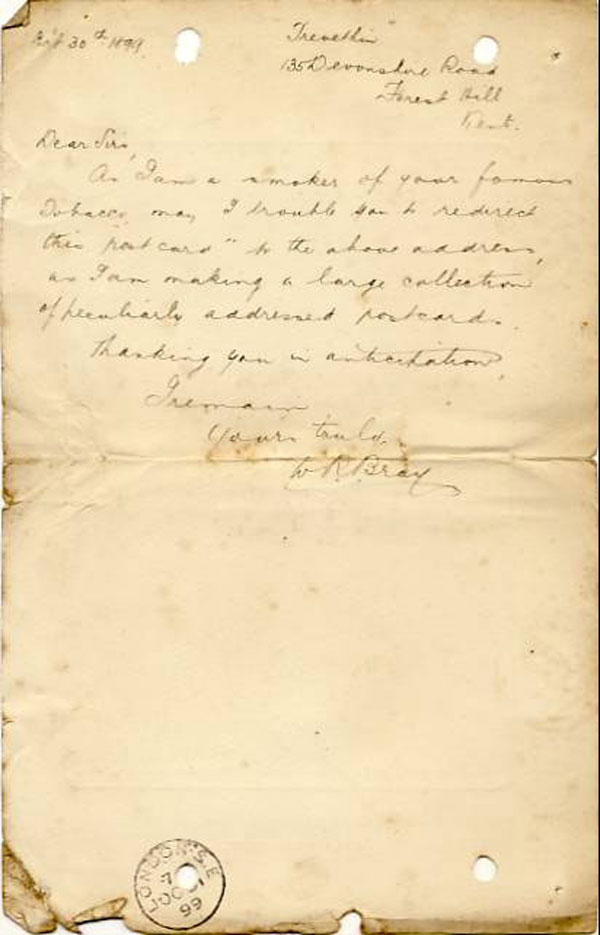 Oct 30th 1899
Trevethin
135 Devonshire Road
Forest Hill
Kent.
Dear Sirs,
As I am a smoker of your famous
Tobacco, may I trouble you to redirect
this "postcard" to the above address,
as I am making a large collection
of peculiarly addressed postcards.
Thanking you in anticitation,
I remain
Yours truly,
W R Bray
LONDON. S.E
7
OC 31
99